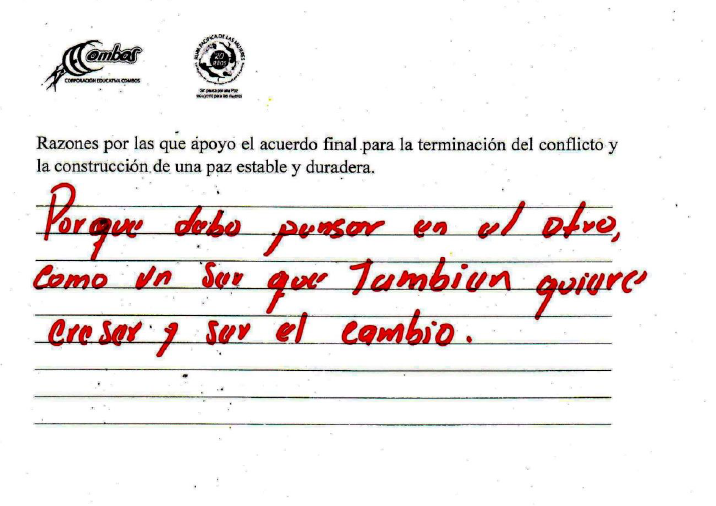 Combos
CORPORACIÓN EDUCATIVA COMBOS
RUTA PACIFICA DE LAS MUJERES
20 años
Razones por las que apoyo el acuerdo final para la terminación del conflicto y
la construcción de una paz estable y duradera.
Porque debo pensar en el otro,
como un ser que también quiere
creser y ser el cambio.